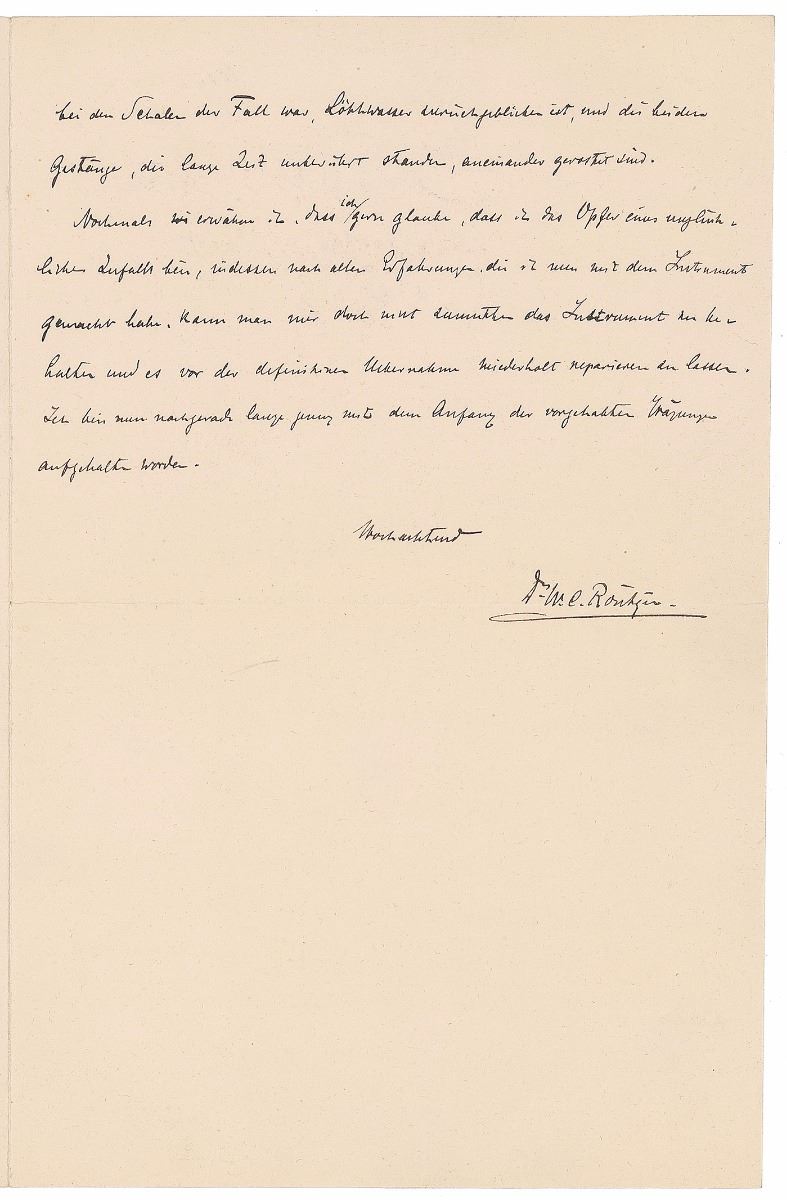 bei den Schalen der Fall war, Löthwasser zurückgeblieben ist, und die beiden
Gestänge, die lange Zeit unberührt standen, aneinander gerostet sind.
Nochmals erwähne ich, dass ich gern glaube, dass ich das Opfer eines unglück-
lichen Zufalls bin, indessen nach allen Erfahrungen, die ich nun mit dem Instrument
gemacht habe, kann man mir doch nicht zumuthen das Instrument zu be-
halten und es vor der definitiven Uebernahme wiederholt repariren zu lassen.
Ich bin nun nachgerade lange genug mit dem Anfang der vorgehabten Wägungen
aufgehalten worden.
Hochachtend
Dr. W. C. Röntgen.